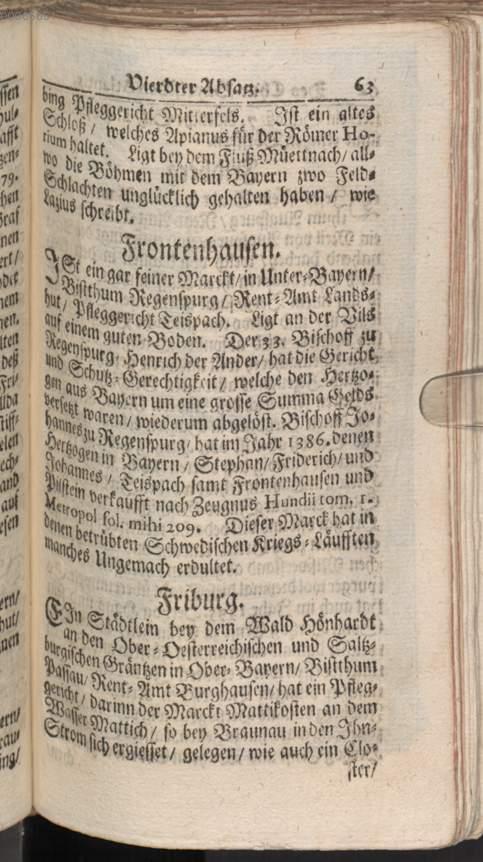 Vierdter Absatz. 63
bing Pfleggericht Mitterfels. Ist ein altes
Schloß / welches Apianus für der Römer Ho-
rium haltet. Ligt bey dem Fluß Müettnach / all-
wo die Böhmen mit dem Bayern zwo Feld-
Schlachten unglücklich gehalten haben / wie
Lazius schreibt.
Frontenhausen.
ISt ein gar feiner Marckt / in Unter-Bayern /
Bistthum Regenspurg / Rent-Amt Lands-
hut / Pfleggericht Teispach. Ligt an der Vils
auf einem guten Boden. Der 33. Bischoff zu
Regenspurg Henrich der Ander / hat die Gericht
und Schutz-Gerechtigkeit / welche den Hertzo-
gen aus Bayern um eine grosse Summa Gelds
versetzt waren / wiederum abgelöst. Bischoff Jo-
hannes zu Regenspurg / hat im Jahr 1386. denen
Hertzogen in Bayern / Stephan / Friderich / und
Johannes / Teispach samt Frontenhausen und
Pilstein verkaufft nach Zeugnus Hundii tom. 1.
Metropol fol. mihi 209. Dieser Marck hat in
denen betrübten Schwedischen Kriegs-Läufften
manches Ungemach erdultet.
Friburg.
EIn Städtlein bey dem Wald Hönhardt
an den Ober-Oesterreichischen und Saltz-
burgischen Gräntzen in Ober-Bayern / Bistthum
Passau / Rent-Amt Burghausen / hat ein Pfleg-
gericht / darinn der Marckt Mattikosten an dem
Wasser Mattich / so bey Braunau in den Ihn-
Strom sich ergiesset / gelegen / wie auch ein Clo-
ster /